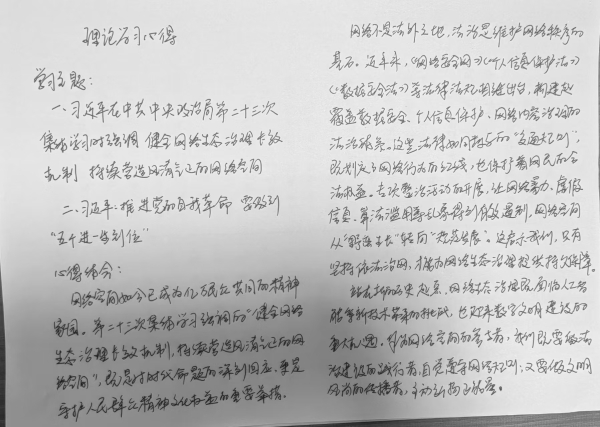 理论学习心得
学习主题：
一、习近平在中共中央政治局第二十三次
集体学习时强调 健全网络生态治理长效
机制 持续营造风清气正的网络空间
二、习近平：推进党的自我革命 要做到
“五个进一步到位”
心得体会：
网络空间如今已成为亿万民众共同的精神
家园。第二十三次集体学习强调的“健全网络
生态治理长效机制，持续营造风清气正的网
络空间”，既是对时代命题的深刻回应，更是
守护人民群众精神文化权益的重要举措。
网络不是法外之地，法治是维护网络秩序的
基石。近年来，《网络安全网》《个人信息保护法》
《数据安全法》等法律法规相继出台，构建起
覆盖数据安全、个人信息保护、网络内容治理的
法治体系。这些法律如同指导的“交通规则”，
既划定了网络行为的红线，也保护着网民的合
法权益。专项整治活动的开展，让网络暴力、虚假
信息、算法滥用等乱象得到有效遏制，网络空间
从“野蛮生长”转向“规范发展”。这启示我们，只有
坚持依法治网，才能为网络生态治理提供持久保障。
站在新的历史起点，网络生态治理既面临人工智
能等新技术带来的挑战，也迎来数字文明建设的
重大机遇。作为网络空间的参与者，我们既要做法
治建设的践行者，自觉遵守网络规则；又要做文明
风尚的传播者，主动弘扬正能量。